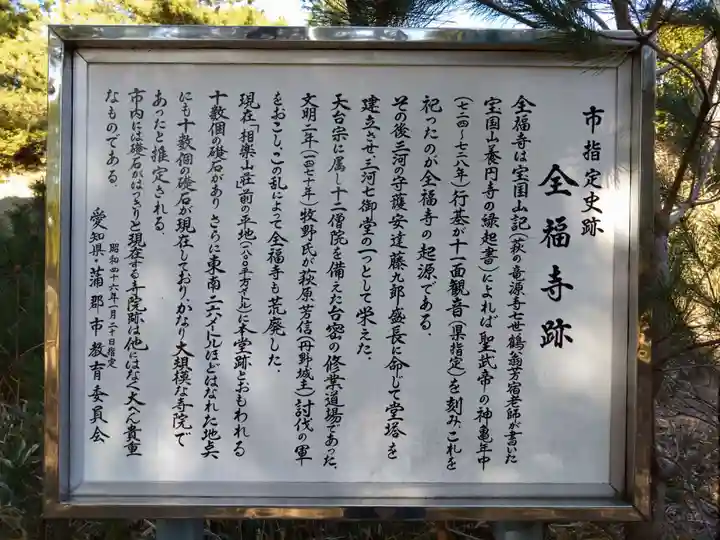 市指定史跡
全福寺跡
全福寺は宝国山記(萩の竜源寺七世鶴翁芳宿老師が書いた
宝国山養円寺の縁起書)によれば聖武帝の神亀年中
(七二四〜七二八年)行基が十一面観音(県指定)を刻み、これを
祀ったのが全福寺の起源である。
その後三河の守護安達藤九郎盛長に命じて堂塔を
建立させ三河七御堂の一つとして栄えた。
天台宗に属し十二僧院を備えた台密の修業道場であった。
文明二年(一四七〇年)牧野氏が萩原芳信(丹野城主)討伐の軍
をおこし、この乱によって全福寺も荒廃した。
現在「相楽山荘」前の平地(八〇〇平方メートル)に本堂跡とおもわれる
十数個の礎石があり さらに東南二六メートルほどはなれた地点
にも十数個の礎石が現在しており、かなり大規模な寺院で
あったと推定される。
市内には礎石がはっきりと現在する寺院跡は他にはなく大へん貴重
なものである。
昭和四十六年一月二十日指定
愛知県・蒲郡市教育委員会